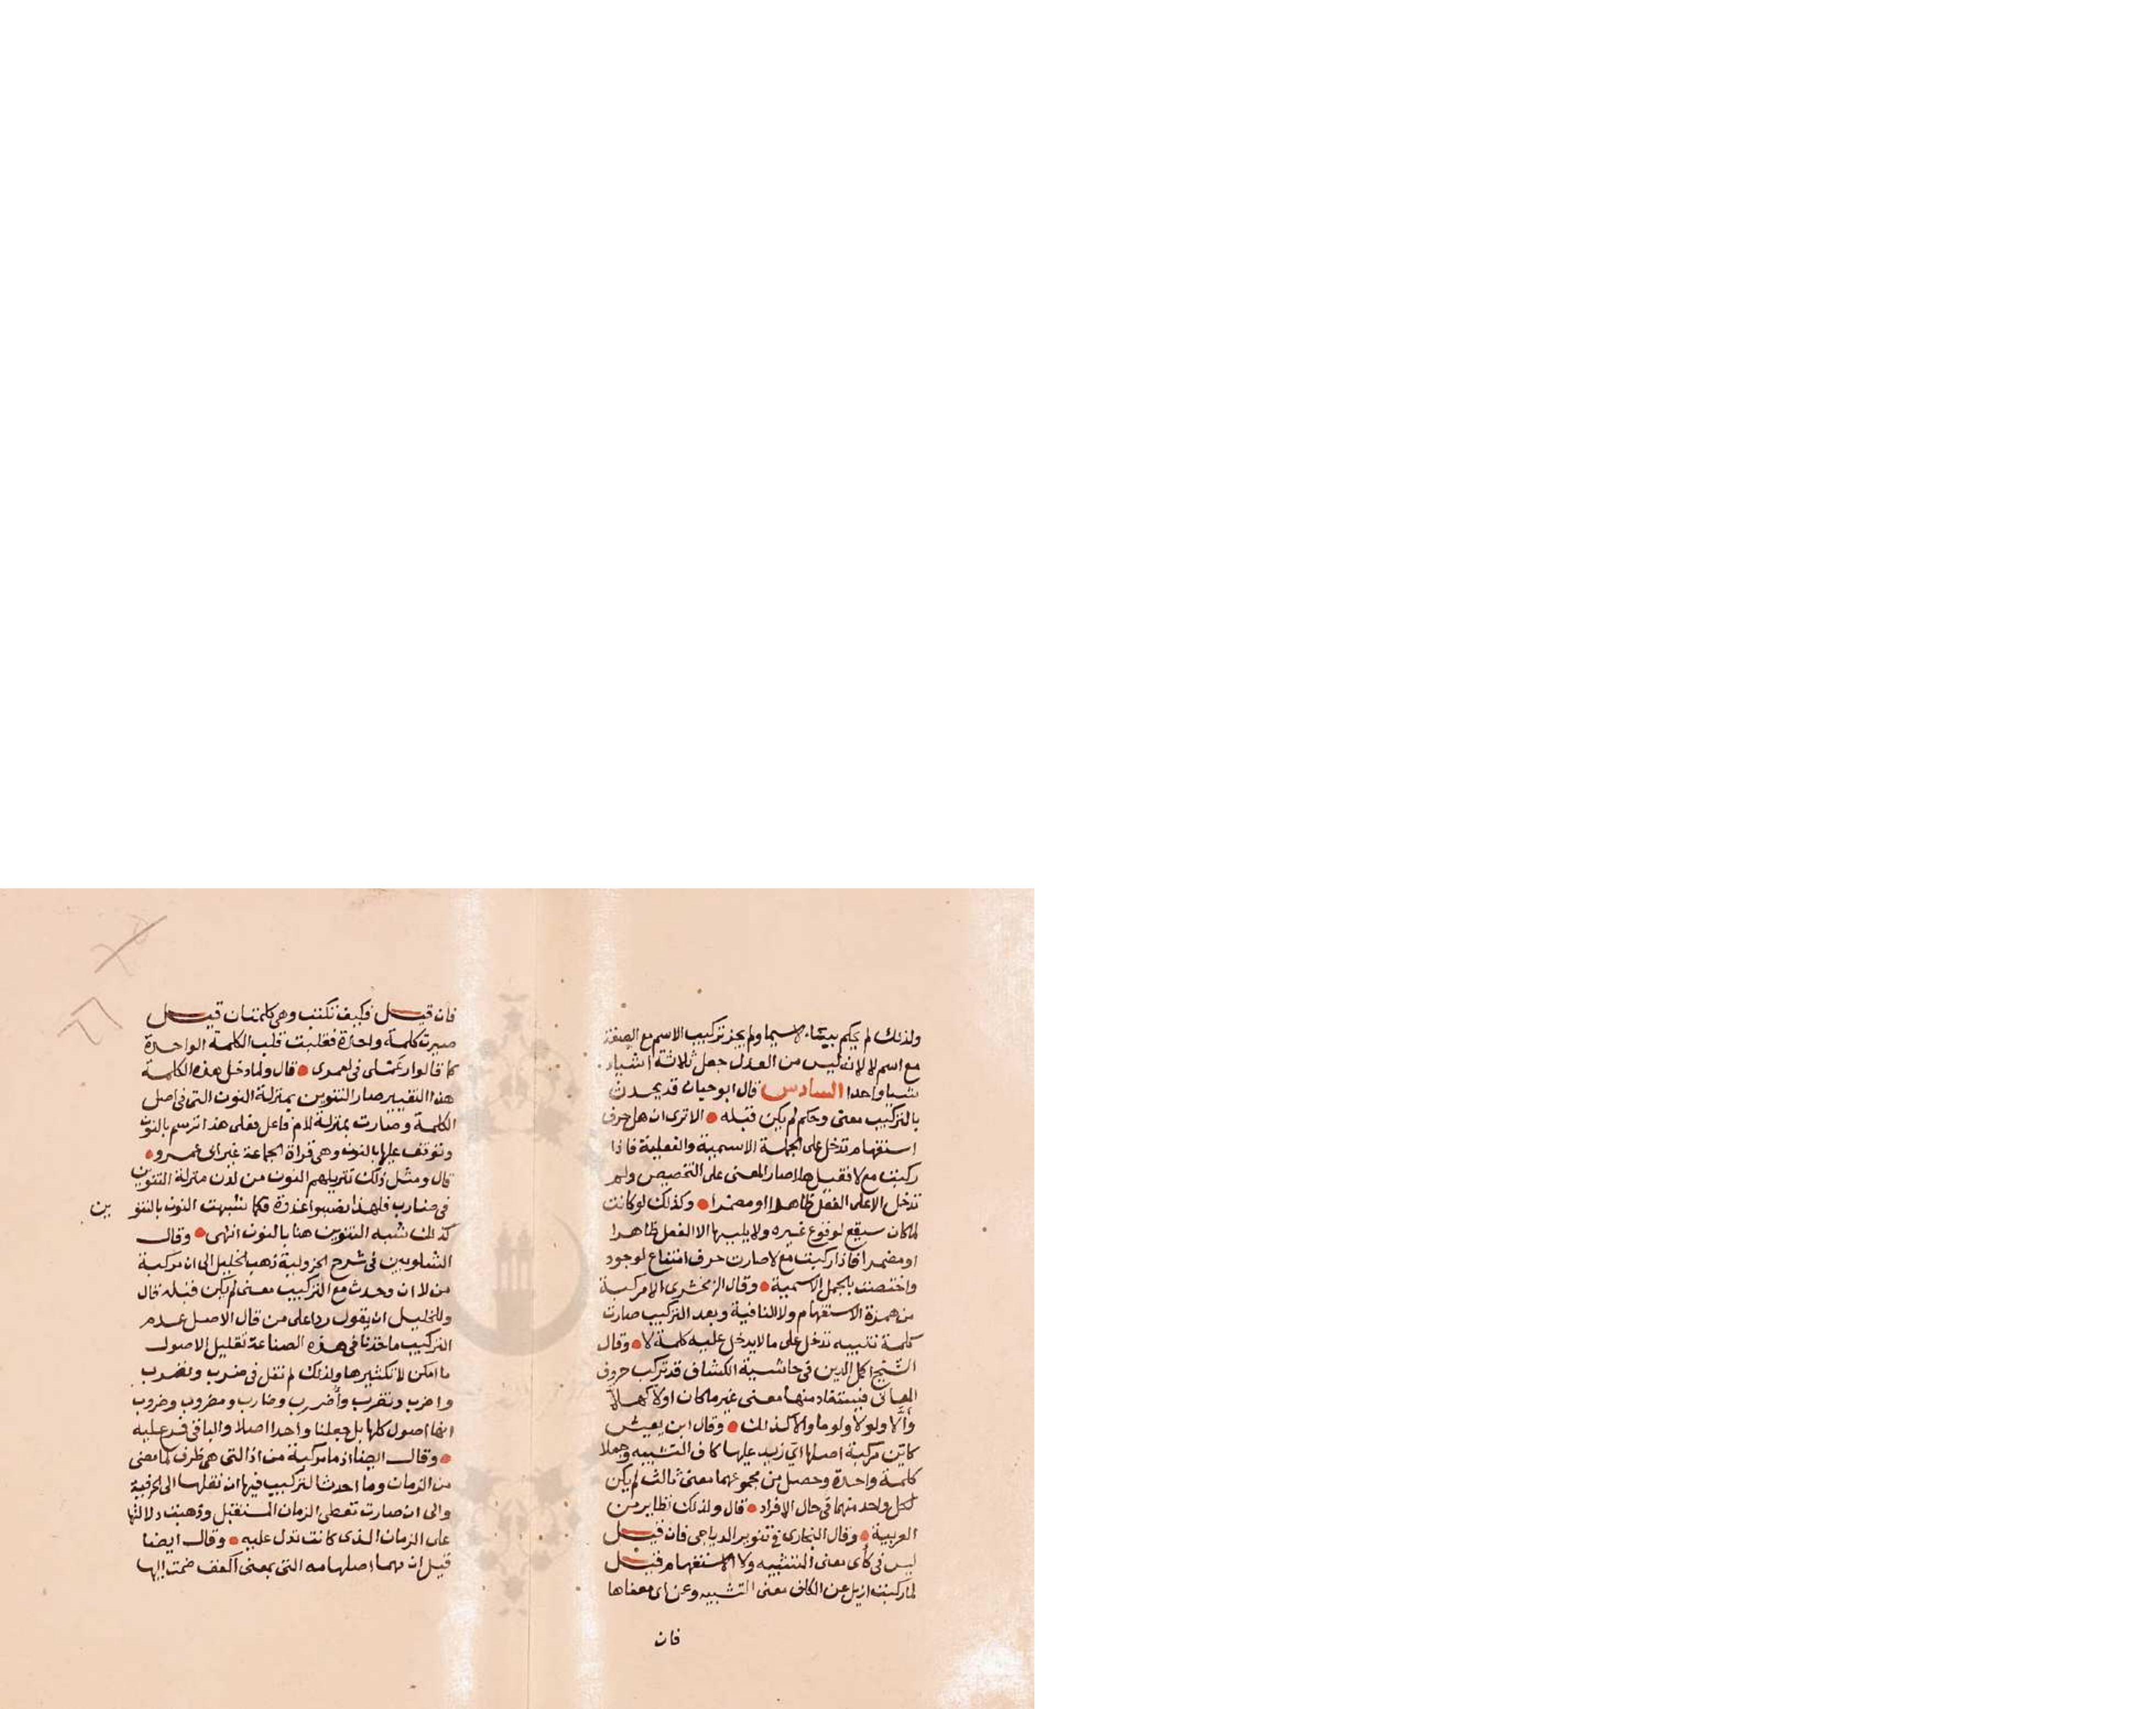 ولذلك لم يحكم ببناء لاسيما ولم يجز تركيب الاسم مع الصفة
مع اسم لا لانه ليس من العدل جعل ثلاثة اشياء
شيا واحدا السادس قال ابو حيان قد يحدث
بالتركيب معنى وحكم لم يكن قبله الا ترى ان هل حرف
استفهام تدخل على الجملة الاسمية والفعلية فاذا
ركبت مع لا فقيل هلا صار المعنى على التحضيض ولم
تدخل الا على الفعل ظاهرا او مضمرا وكذلك لو كانت
لما كان سيقع لوقوع غيره ولا يليها الا الفعل ظاهرا
او مضمرا فاذا ركبت مع لا صارت حرف امتناع لوجود
واختصت بالجمل الاسمية وقال الزمخشري الا مركبة
من همزة الاستفهام ولا النافية وبعد التركيب صارت
كلمة تنبيه تدخل على ما لا يدخل عليه كلمة لا وقال
الشيخ اكمل الدين في حاشية الكشاف قد تركب حروف
المعاني فيستفاد منها معنى غير ما كان اولا كهلا
وألا ولولا ولوما والا كذلك وقال ابن يعيش
كاين مركبة اصلها اي زيد عليها كاف التشبيه وجعلا
كلمة واحدة وحصل من مجموعهما معنى ثالث لم يكن
لكل واحد منهما في حال الافراد قال ولذلك نظاير من
العربية وقال في تنوير الدياجي فان قيل
ليس في كأى معنى التشبيه ولا الاستفهام قيل
لما ركبت ازيل عن الكاف معنى التشبيه وعن اى معناها
فان
فان قيل فكيف تكتب وهي كلمتان قيل
صيرت كلمة واحدة فقلبت قلب الكلمة الواحدة
كما قالوا رعملى في لعمرى قال ولما دخل هذه الكلمة
هذا التغيير صار التنوين بمنزلة النون التي في اصل
الكلمة وصارت بمنزلة لام فاعل فعلى هذا ترسم بالنون
وتوقف عليها بالنون وهي قراة الجماعة غير ابى عمرو
قال ومثل ذلك تنزيلهم النون من لدن منزلة التنوين
في ضارب فلهذا نصبوا غدوة فكما شبهت النون بالتنو
ين
كذلك شبه التنوين هنا بالنون انتهى وقال
الشلوبين في شرح الجزولية ذهب الخليل الى ان مركبة
من لا ان وحدث مع التركيب معنى لم يكن قبله قال
وللخليل ان يقول ردا على من قال الاصل عدم
التركيب ماخذنا في هذه الصناعة تقليل الاصول
ما امكن لا تكثيرها ولذلك لم نقل في ضرب ونضرب
واضرب وتضرب وأضرب وضارب ومضروب وضروب
انها اصول كلها بل جعلنا واحدا اصلا والباقي فرع عليه
وقال ايضا اذ ما مركبة من اذ التي هي ظرف لما مضى
من الزمان وما احدث التركيب فيها ان نقلها الى الحرفية
والى ان صارت تعطى الزمان المستقبل وذهبت دلالتها
على الزمان الذى كانت تدل عليه وقال ايضا
قيل ان مهما اصلها مه التى بمعنى اكفف ضمت اليها